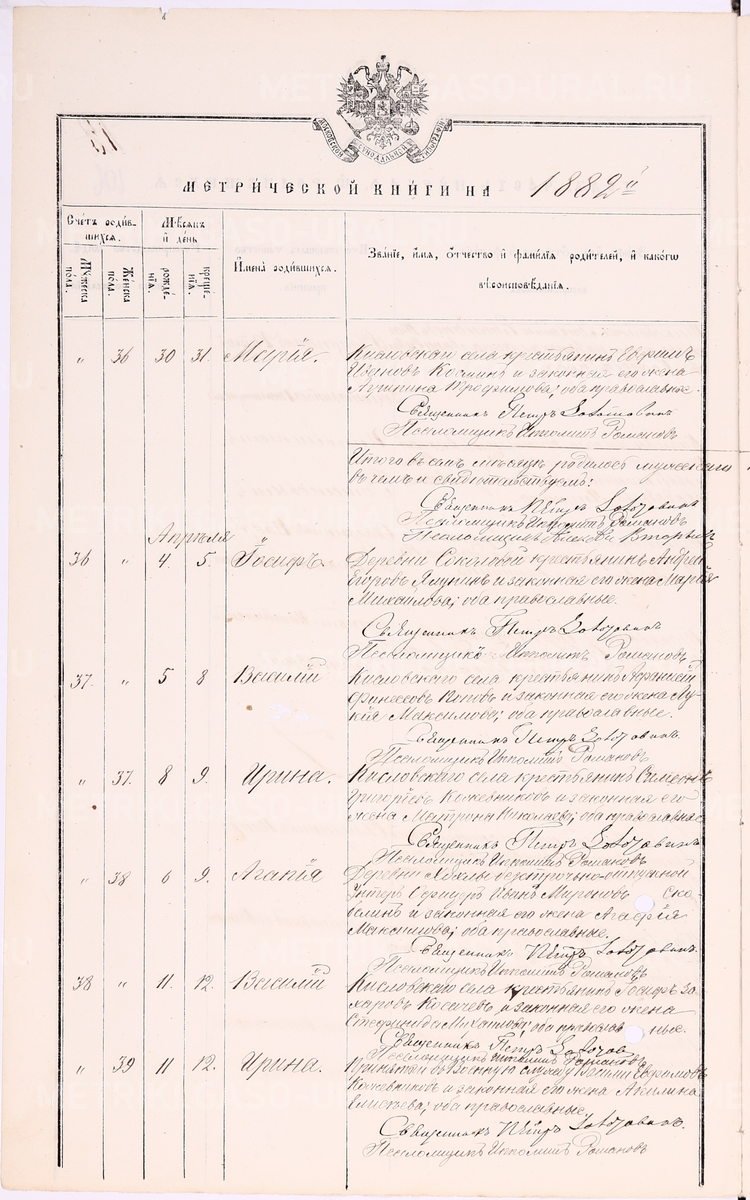 МЕТРИЧЕСКОЙ КНИГИ НА 1882й
Счетъ родив-
шихся.
Мѣсяцъ
и день
Имена родившихся.
Званіе, имя, отчество и фамилія родителей, и какого
вѣроисповѣданія.
Мужеска
пола.
Женска
пола.
рожде-
нія.
креще-
нія.
" 36 30 31. Марія. Кисловскаго села крестьянинъ Ефримъ
Козминъ и законная его жена
Трофимова; оба православные.
Священникъ Петръ
Псаломщикъ Ипполитъ Романовъ
Итого въ семъ мѣсяцѣ родилось мужескаго
въ чемъ и свидѣтельствуемъ:
Священникъ Петръ
Псаломщикъ Ипполитъ Романовъ
Псаломщикъ
Апрѣля
36 " 4. 5. Іосифъ. Деревни Соколовой крестьянинъ Андрей
Егоровъ Ялунинъ и законная его жена Марія
Михаилова; оба православные.
Священникъ Петръ
Псаломщикъ Ипполитъ Романовъ
37. " 5 8 Василій Кисловскаго села крестьянинъ Афанасій
и законная его жена Лу-
кія Максимова; оба православные.
Священникъ Петръ
Псаломщикъ Ипполитъ Романовъ
" 37. 8 9. Ирина. Кисловскаго села крестьянинъ Симеонъ
Григоріевъ Кожевниковъ и законная его
жена Матрона Николаева; оба православные
Священникъ Петръ
Псаломщикъ Ипполитъ Романовъ
" 38 6 9. Агапія Деревни безсрочно-отпускной
Унтеръ Офицеръ Иванъ Мироновъ
и законная его жена Агафія
Максимова; оба православные.
Священникъ Петръ
Псаломщикъ Ипполитъ Романовъ
38 " 11. 12. Василій Кисловскаго села крестьянинъ Іосифъ За-
харовъ Косачевъ и законная его жена
Михаилова; оба православные.
Священникъ Петръ
Псаломщикъ Ипполитъ Романовъ
" 39 11 12. Ирина. Принятый въ военную службу Евфимовъ
Кожевниковъ и законная его жена Акилина
Елисѣева; оба православные.
Священникъ Петръ
Псаломщикъ Ипполитъ Романовъ